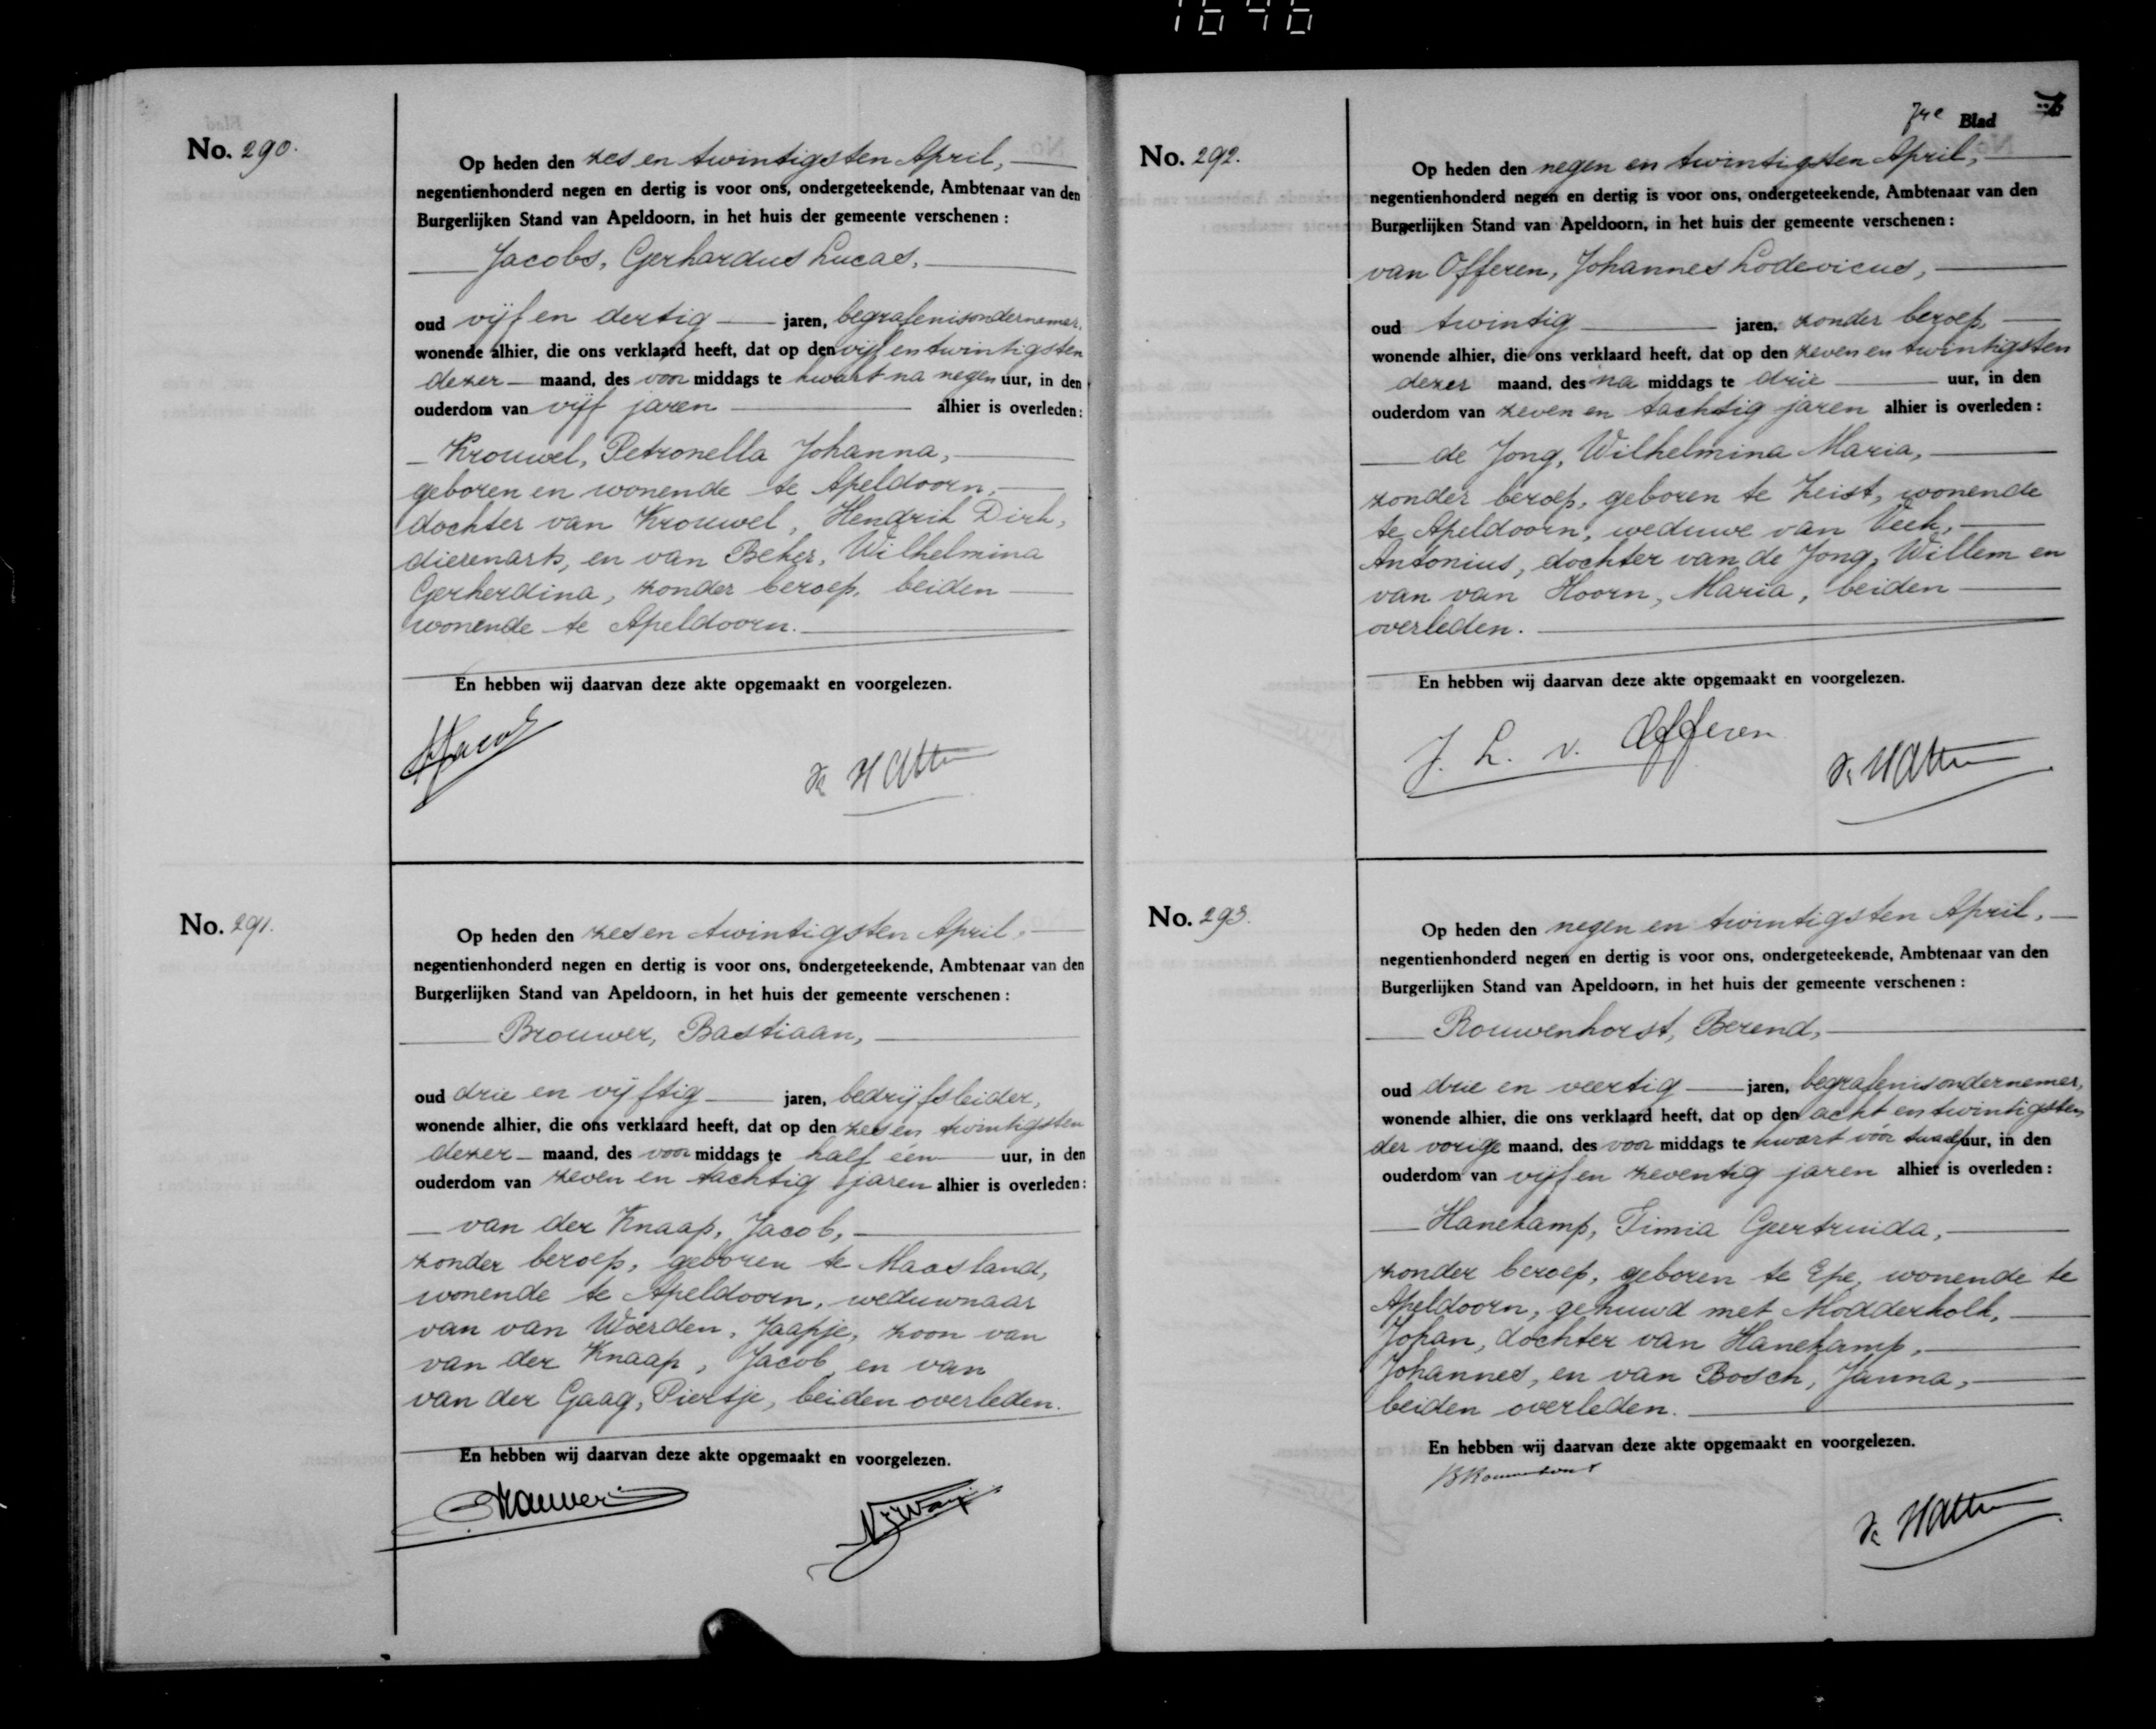 1646
No. 290.
Op heden den zes en twintigsten April,
negentienhonderd negen en dertig is voor ons, ondergeteekende, Ambtenaar van den
Burgerlijken Stand van Apeldoorn, in het huis der gemeente verschenen:
Jacobs, Gerhardus Lucas,
oud vijf en dertig jaren, begrafenisondernemer,
wonende alhier, die ons verklaard heeft, dat op den vijf en twintigsten
dezer maand, des voor middags te kwart na negen uur, in den
ouderdom van vijf jaren alhier is overleden:
Krouwel, Petronella Johanna,
geboren en wonende te Apeldoorn,
dochter van Krouwel, Hendrik Dirk,
dierenarts, en van Beker, Wilhelmina
Gerherdina, zonder beroep, beiden
wonende te Apeldoorn.
En hebben wij daarvan deze akte opgemaakt en voorgelezen.
No. 291.
Op heden den zes en twintigsten April,
negentienhonderd negen en dertig is voor ons, ondergeteekende, Ambtenaar van den
Burgerlijken Stand van Apeldoorn, in het huis der gemeente verschenen:
Brouwer, Bastiaan,
oud drie en vijftig jaren, bedrijfsleider,
wonende alhier, die ons verklaard heeft, dat op den zes en twintigsten
dezer maand, des voor middags te half een uur, in den
ouderdom van zeven en tachtig jaren alhier is overleden:
van der Knaap, Jacob,
zonder beroep, geboren te Maasland,
wonende te Apeldoorn, weduwnaar
van van Woerden, Jaapje, zoon van
van der Knaap, Jacob en van
van der Gaag, Piertje, beiden overleden.
En hebben wij daarvan deze akte opgemaakt en voorgelezen.
Brouwer
74e Blad
No. 292.
Op heden den negen en twintigsten April,
negentienhonderd negen en dertig is voor ons, ondergeteekende, Ambtenaar van den
Burgerlijken Stand van Apeldoorn, in het huis der gemeente verschenen:
van Offeren, Johannes Lodevicus,
oud twintig jaren, zonder beroep,
wonende alhier, die ons verklaard heeft, dat op den zeven en twintigsten
dezer maand, des na middags te drie uur, in den
ouderdom van zeven en tachtig jaren alhier is overleden:
de Jong, Wilhelmina Maria,
zonder beroep, geboren te Zeist, wonende
te Apeldoorn, weduwe van Veek,
Antonius, dochter van de Jong, Willem en
van van Hoorn, Maria, beiden
overleden.
En hebben wij daarvan deze akte opgemaakt en voorgelezen.
J. L. v. Offeren
No. 293.
Op heden den negen en twintigsten April,
negentienhonderd negen en dertig is voor ons, ondergeteekende, Ambtenaar van den
Burgerlijken Stand van Apeldoorn, in het huis der gemeente verschenen:
Rouwenhorst, Berend,
oud drie en veertig jaren, begrafenisondernemer,
wonende alhier, die ons verklaard heeft, dat op den acht en twintigsten
der vorige maand, des voor middags te kwart vóór twaalf uur, in den
ouderdom van vijf en zeventig jaren alhier is overleden:
Hanekamp, Timia Geertruida,
zonder beroep, geboren te Epe, wonende te
Apeldoorn, gehuwd met Modderkolk,
Johan, dochter van Hanekamp,
Johannes, en van Bosch, Janna,
beiden overleden.
En hebben wij daarvan deze akte opgemaakt en voorgelezen.
BRouwenhorst